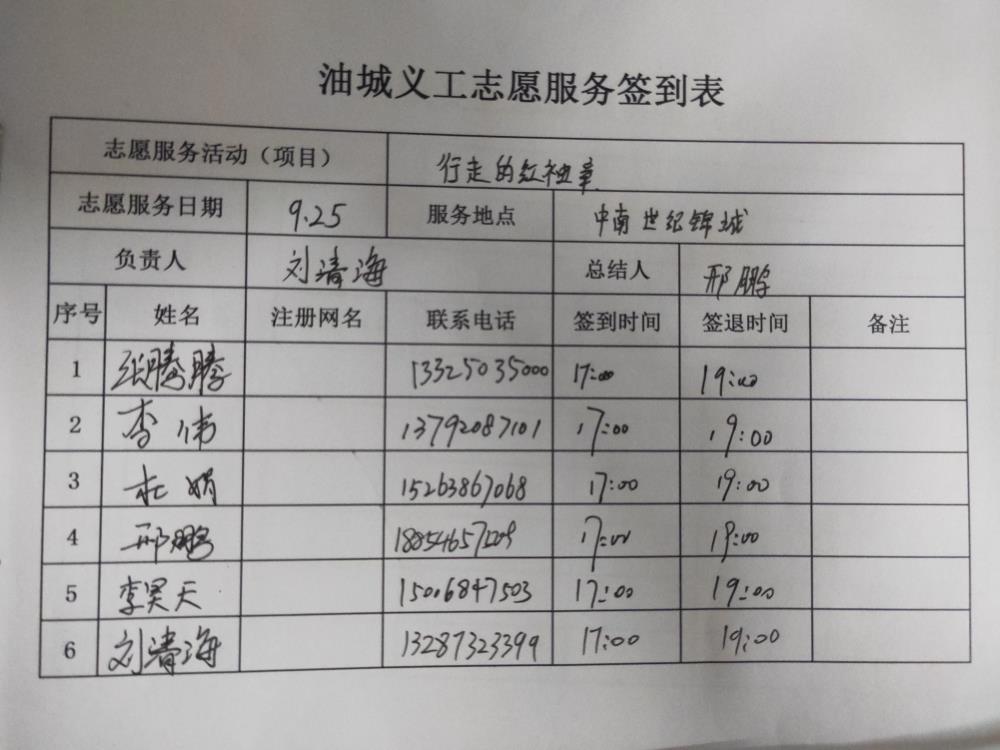 油城义工志愿服务签到表
志愿服务活动（项目） 行走的红袖章
志愿服务日期 9.25 服务地点 中南世纪锦城
负责人 刘清海 总结人 邢鹏
序号 姓名 注册网名 联系电话 签到时间 签退时间 备注
1 张腾腾 13325035000 17:00 19:00
2 李伟 13792087101 17:00 19:00
3 杜娟 15263867068 17:00 19:00
4 邢鹏 17:00 19:00
5 李昊天 15006847503 17:00 19:00
6 刘清海 13287323399 17:00 19:00